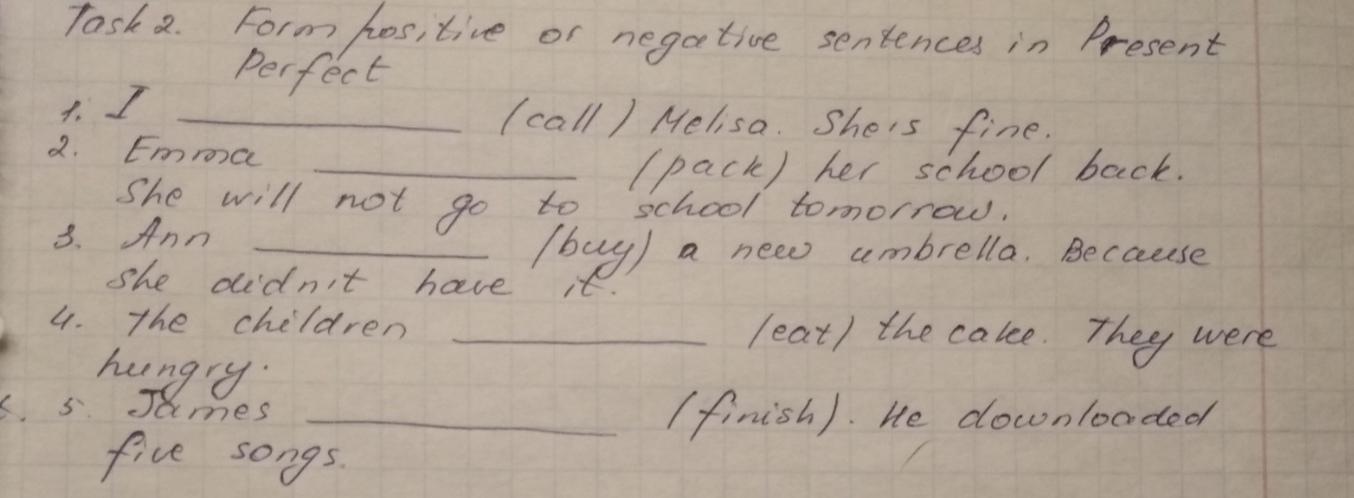 Task 2. Form positive or negative sentences in Present
Perfect
1. I __________ (call) Melisa. She is fine.
2. Emma __________ (pack) her school back.
She will not go to school tomorrow.
3. Ann __________ (buy) a new umbrella. Because
she didn't have it.
4. The children __________ (eat) the cake. They were
hungry.
5. James __________ (finish). He downloaded
five songs.